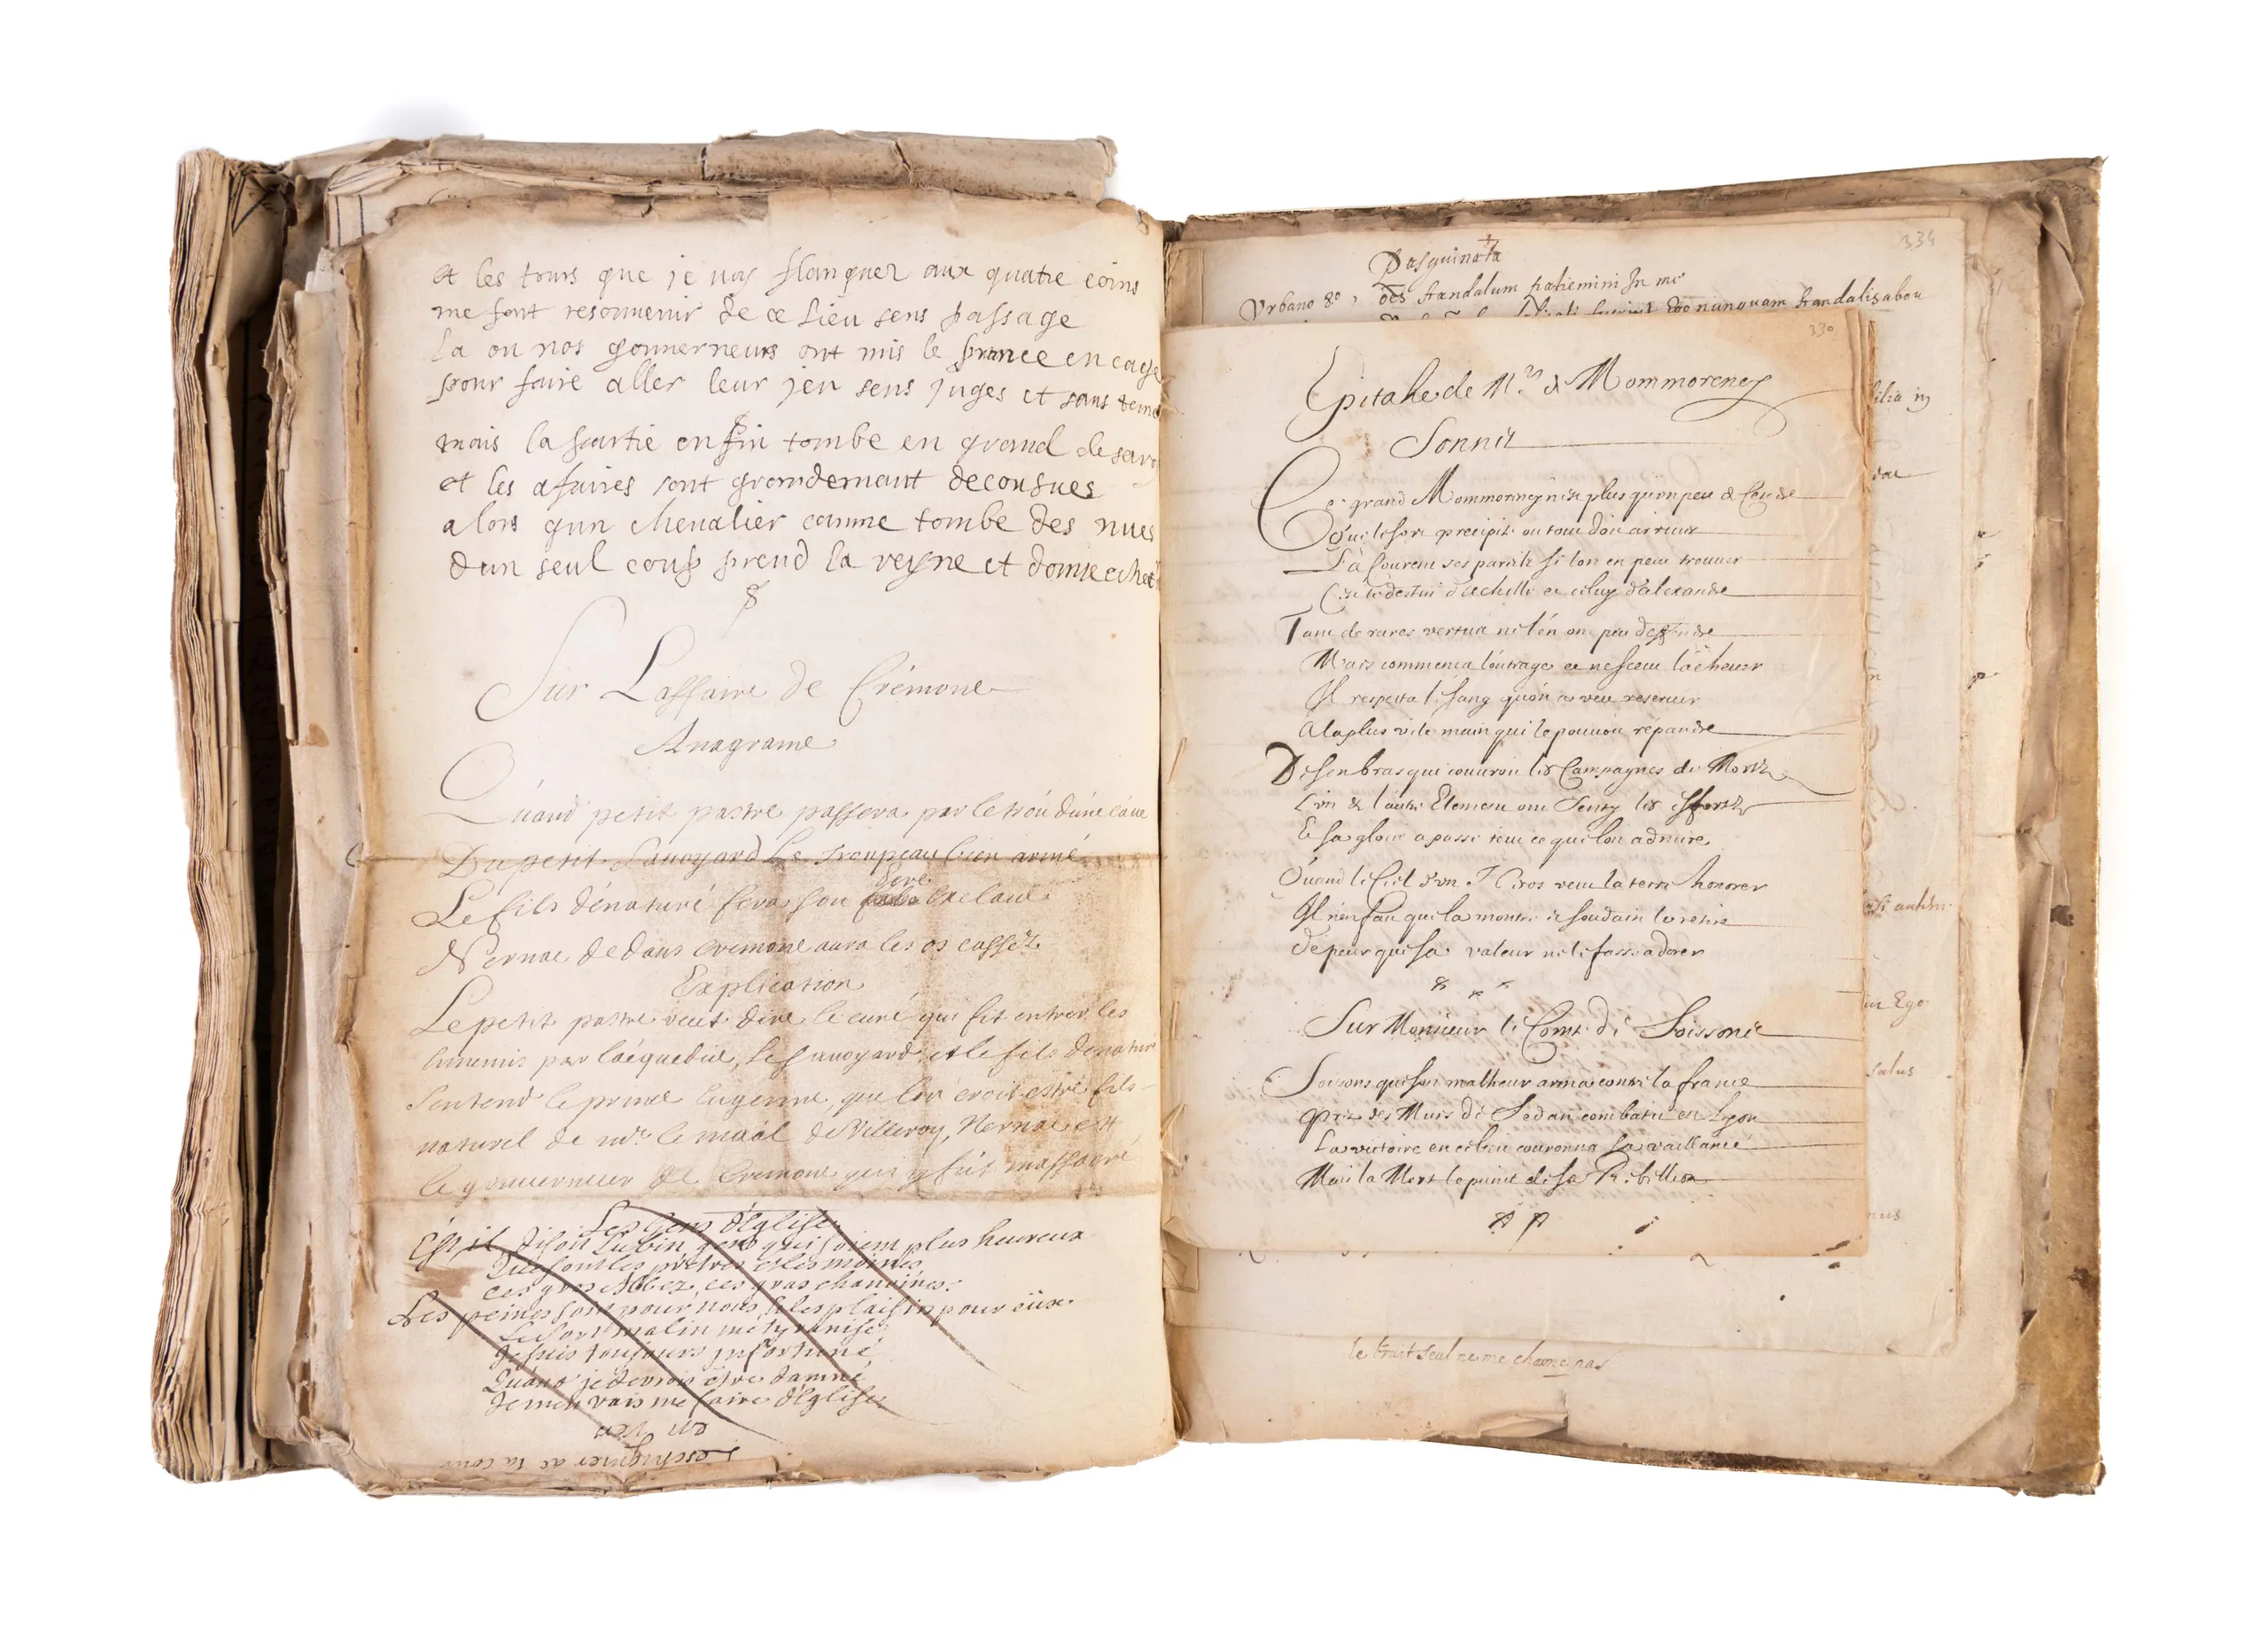 et les tours que je voy flanquer aux quatre coins
me font resouuenir de ce lieu sens passage
la ou nos gouuerneurs ont mis le prince en cage
pour faire aller leur jeu sens juges et sans
mais la partie enfin tombe en grand
et les afaires sont grandemant decousues
alors qun chevalier comme tombe des nues
dun seul coup prend la
et donne
Sur Laffaire de Crémone
Anagrame
Quand petit pastre passera par le trou d'une caue
Du petit Sauoyard Le troupeau bien armé
Le fils dénaturé fera son pere esclaue
Nernac dedans cremone aura les os cassez
Explication
Le petit pastre veut dire le curé qui fit entrer les
ennemis par l'aéqueduc, le sauoyard et le fils denaturé
sentend le prince Eugenne, que l'on croit estre fils
naturel de mr le maál de Villeroy, Nernac est
le gouuerneur de Cremone qui y fut massacré
Les Gens d'Eglise
Est il disoit Lubin gens qui soient plus heureux
Que sont les prétres et les moines
ces gros Abbez, ces gras chanoines
Les peines sont pour nous, & les plaisirs pour eux
Le sort malin me tyranise
Je suis toujours infortuné
Quand je devrois être damné
Je m'en vais me faire d'Eglise
Pasquinata
334
Urbano 8o, oēs scandalum patiemini in me
nunquam scandalisabor
330
Epitahe de Mr de Mommorency
Sonnit
Ce grand Mommorency n'est plus qu'un peu de Cendre
Où le sort precipite
Là
ses pareils si l'on en peut trouuer
C'est le destin d'Achille et celuy d'alexandre
Tant de rares vertus ne l'en ont peu deffendre
Mars commenca l'outrage et ne sceut l'acheuer
Il respecta le sang qu'on a veu reseruer
A la plus vile main qui le pouuoit répandre
De son bras qui couuroit les Campagnes de Morts
L'un & l'autre Element ont senty les efforts
Et sa gloire a passé tout ce que l'on admire
Quand le Ciel d'un Heros veut la terre honorer
Il n'en fait que la montre et soudain le retire
De peur que sa valeur ne le fasse adorer
Sur Monsieur le Comte de Soissons
Soissons que son malheur arma contre la france
Pres des Murs de Sedan combatit en Lyon
La victoire en ce lieu couronna sa vaillance
Mais la Mort le punit de sa Rebellion
in Ego
salus
le bruit seul ne me charme pas